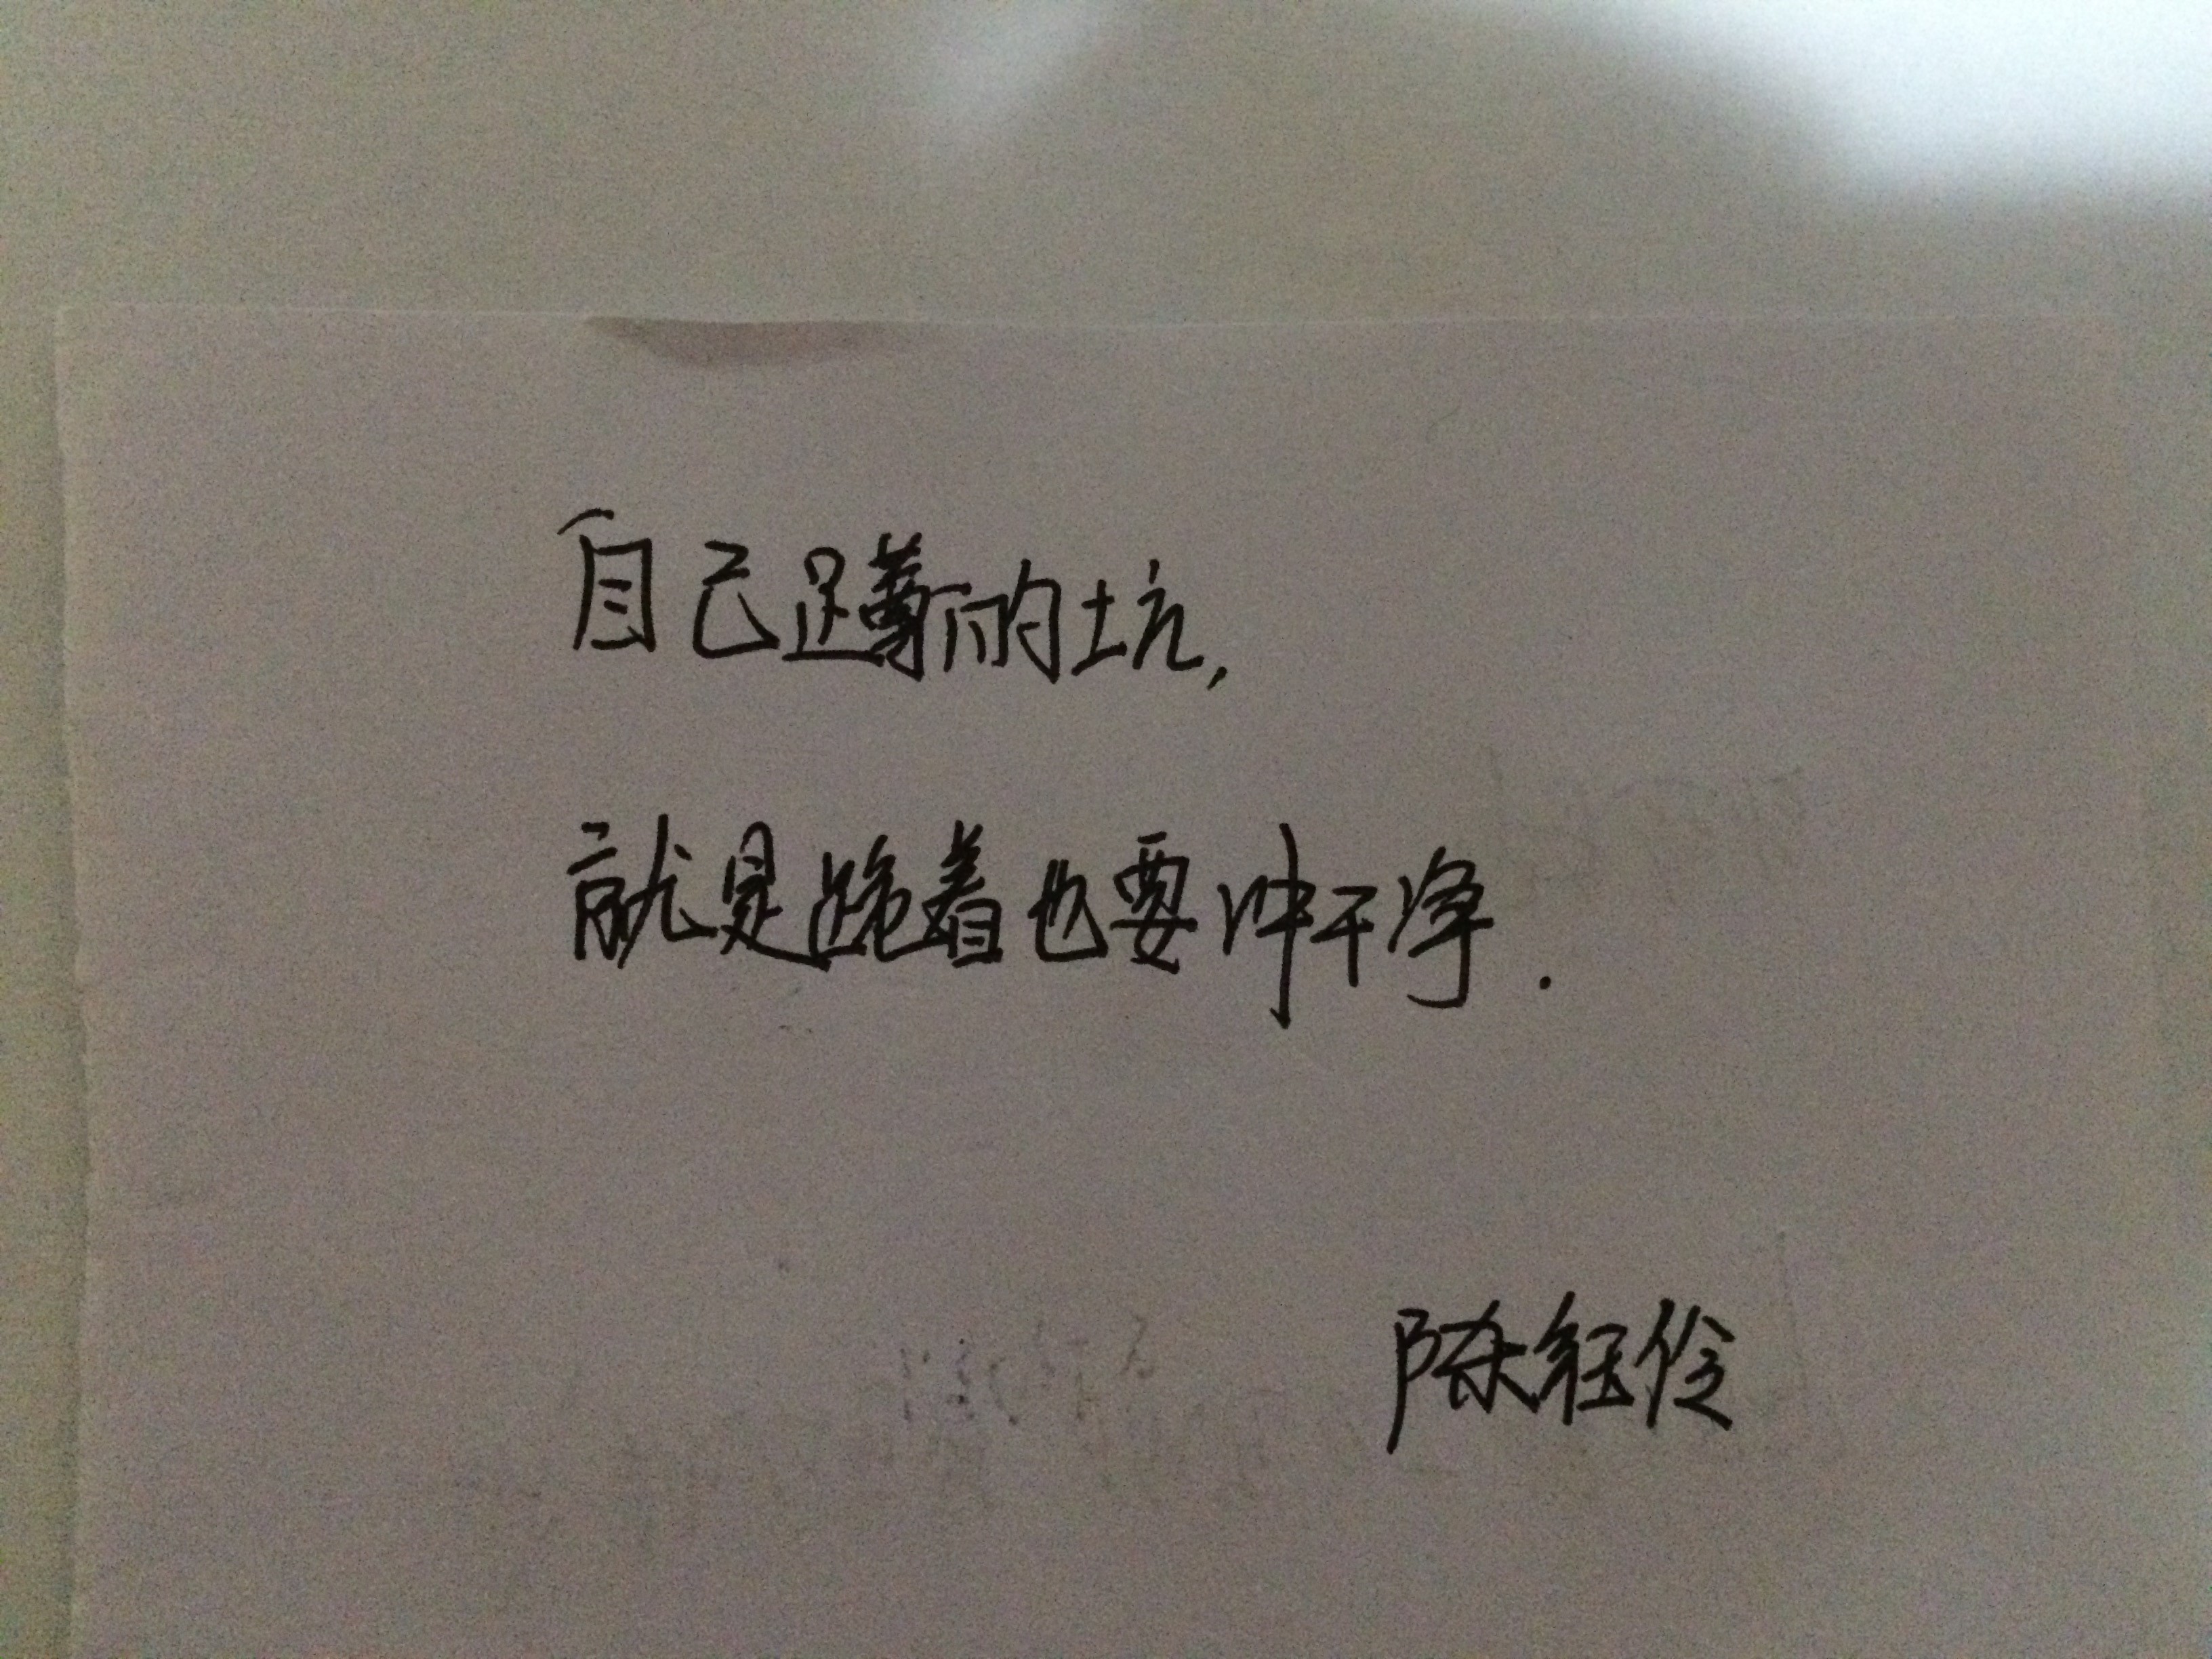 自己蹲的坑,
就是跪着也要冲干净.
陈钰伶